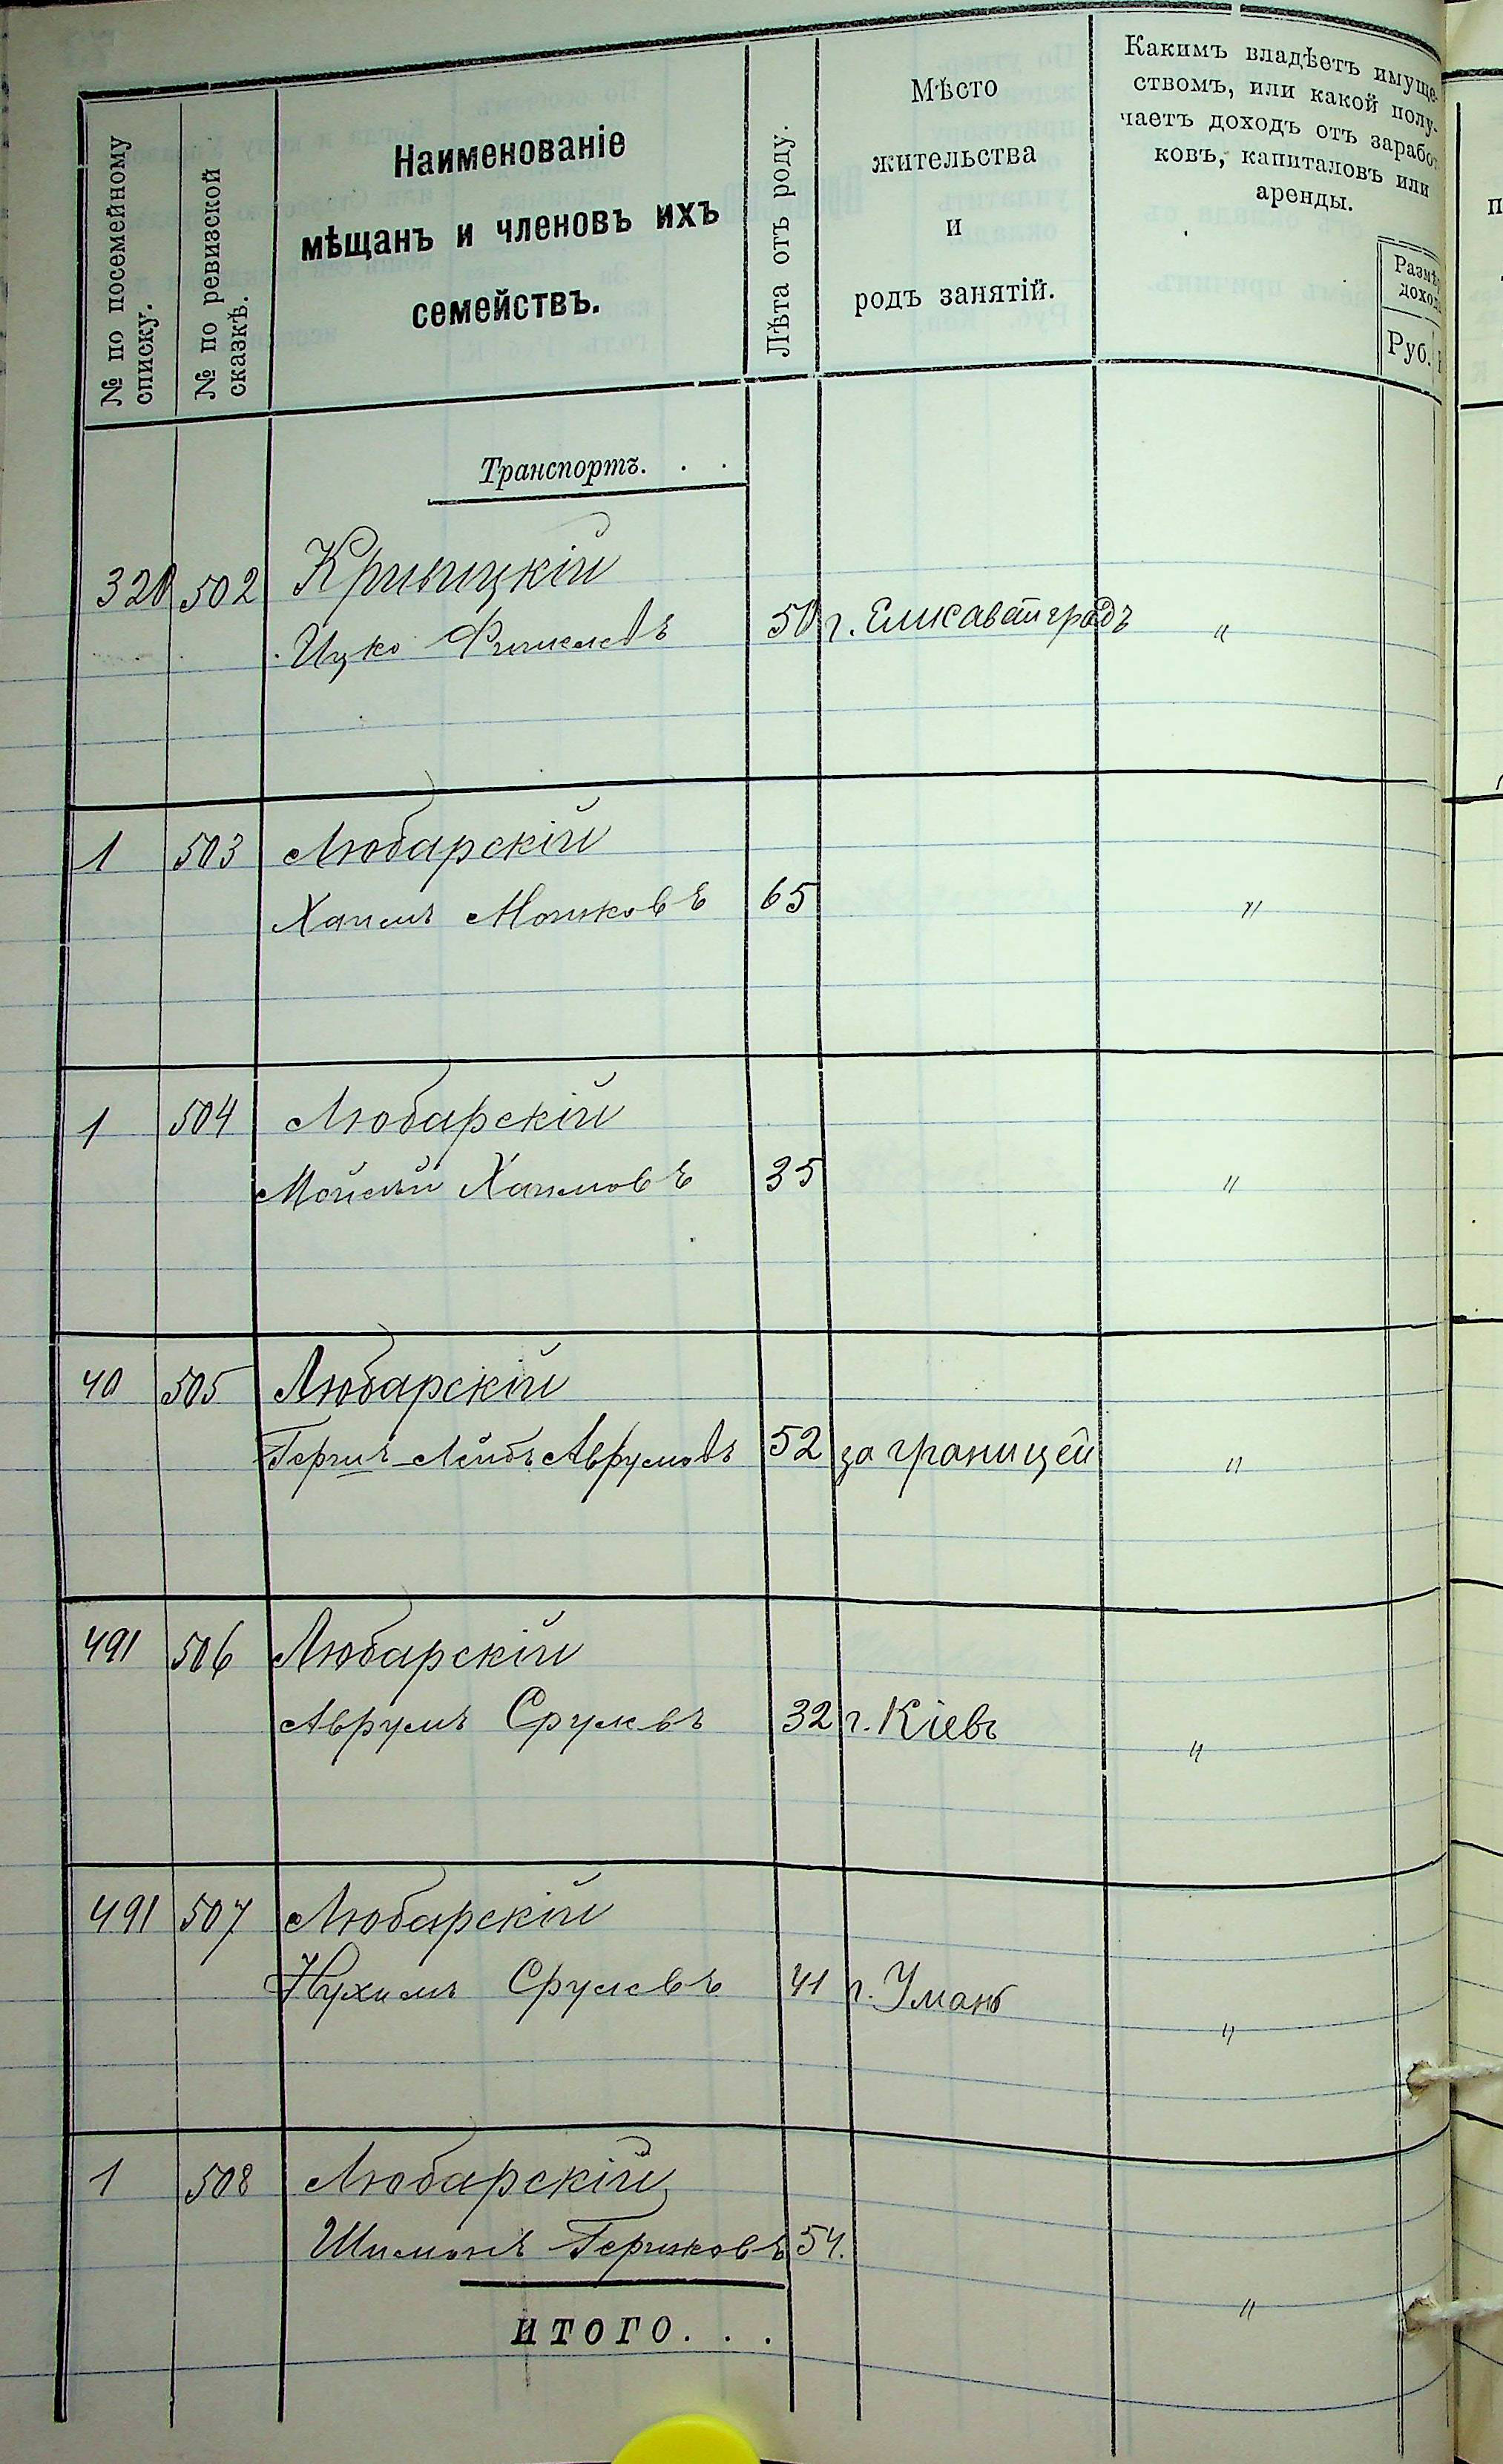 № по посемейному
списку.
№ по ревизской
сказкѣ.
Наименованіе
мѣщанъ и членовъ ихъ
семействъ.
Лѣта отъ роду.
Мѣсто
жительства
и
родъ занятій.
Какимъ владѣетъ имуще-
ствомъ, или какой полу-
чаетъ доходъ отъ зарабо
ковъ, капиталовъ или
аренды.
Размѣ
доход
Руб.
Транспортъ. . .
320 502 Криницкій
Ицко Фишелевъ 50 г. Елисаветградъ "
1 503 Любарскій
Хаимъ Мошковъ 65 "
1 504 Любарскій
Мойсей Хаимовъ 35 "
40 505 Любарскій
Гершъ-Лейбъ Аврумовъ 52 за границей "
491 506 Любарскій
Аврумъ Срулевъ 32 г. Кіевъ "
491 507 Любарскій
Нухимъ Срулевъ 41 г. Умань "
1 508 Любарскій
Шимонъ Гершковъ 54. "
итого. . .